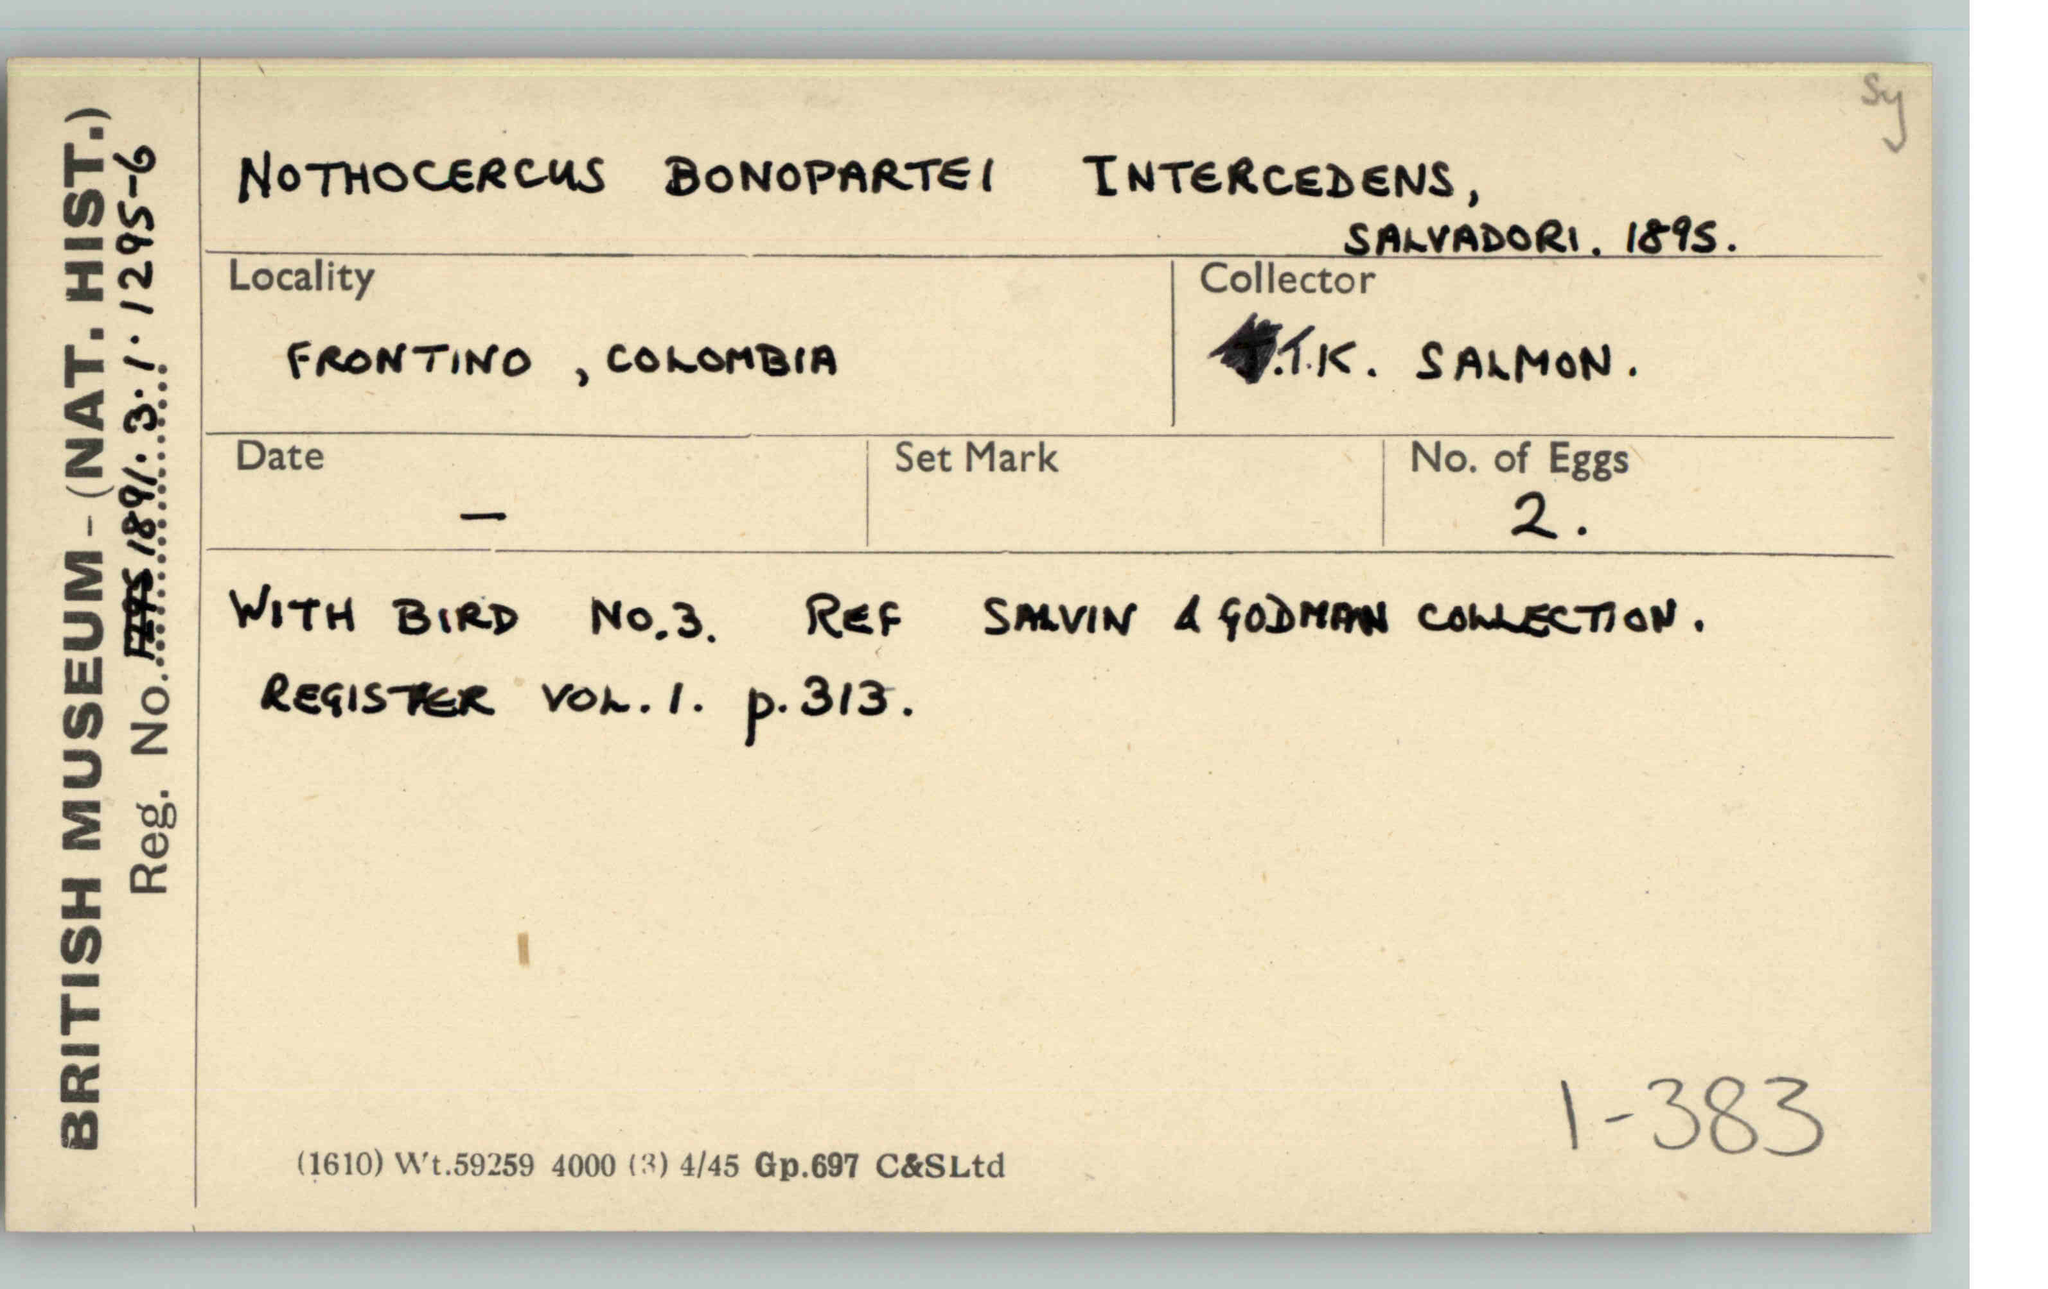 Sy
BRITISH MUSEUM – (NAT. HIST.)
Reg. No. 1295 1891.3.1.1295-6
NOTHOCERCUS BONOPARTEI INTERCEDENS,
SALVADORI. 1895.
Locality
FRONTINO, COLOMBIA
Collector
T.K. SALMON.
Date
—
Set Mark
No. of Eggs
2.
WITH BIRD NO.3. REF SALVIN & GODMAN COLLECTION.
REGISTER VOL.1. p.313.
1-383
(1610) Wt.59259 4000 (3) 4/45 Gp.697 C&SLtd